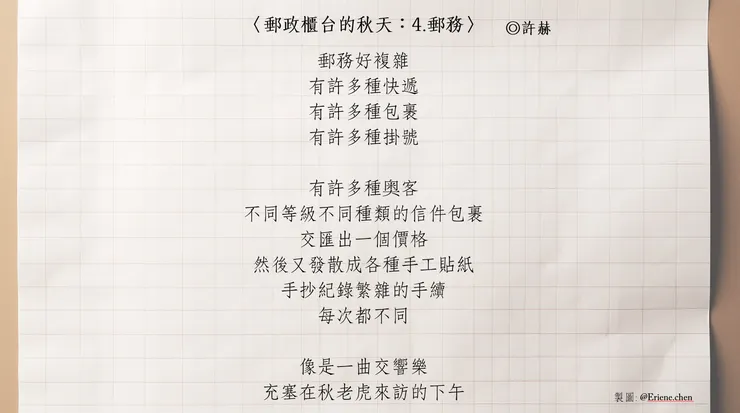 〈郵政櫃台的秋天：4.郵務〉 ◎許赫
郵務好複雜
有許多種快遞
有許多種包裹
有許多種掛號
有許多種奧客
不同等級不同種類的信件包裹
交匯出一個價格
然後又發散成各種手工貼紙
手抄紀錄繁雜的手續
每次都不同
像是一曲交響樂
充塞在秋老虎來訪的下午
製圖：@Eriene.chen